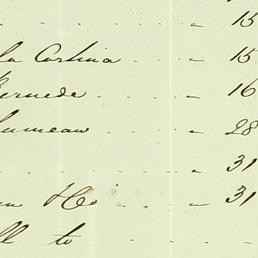 " 15
la Carlina . . . " 15
Bernede . . . " 16
lumeau . . . " 28
" 31
& Co . . . " 31
ll to